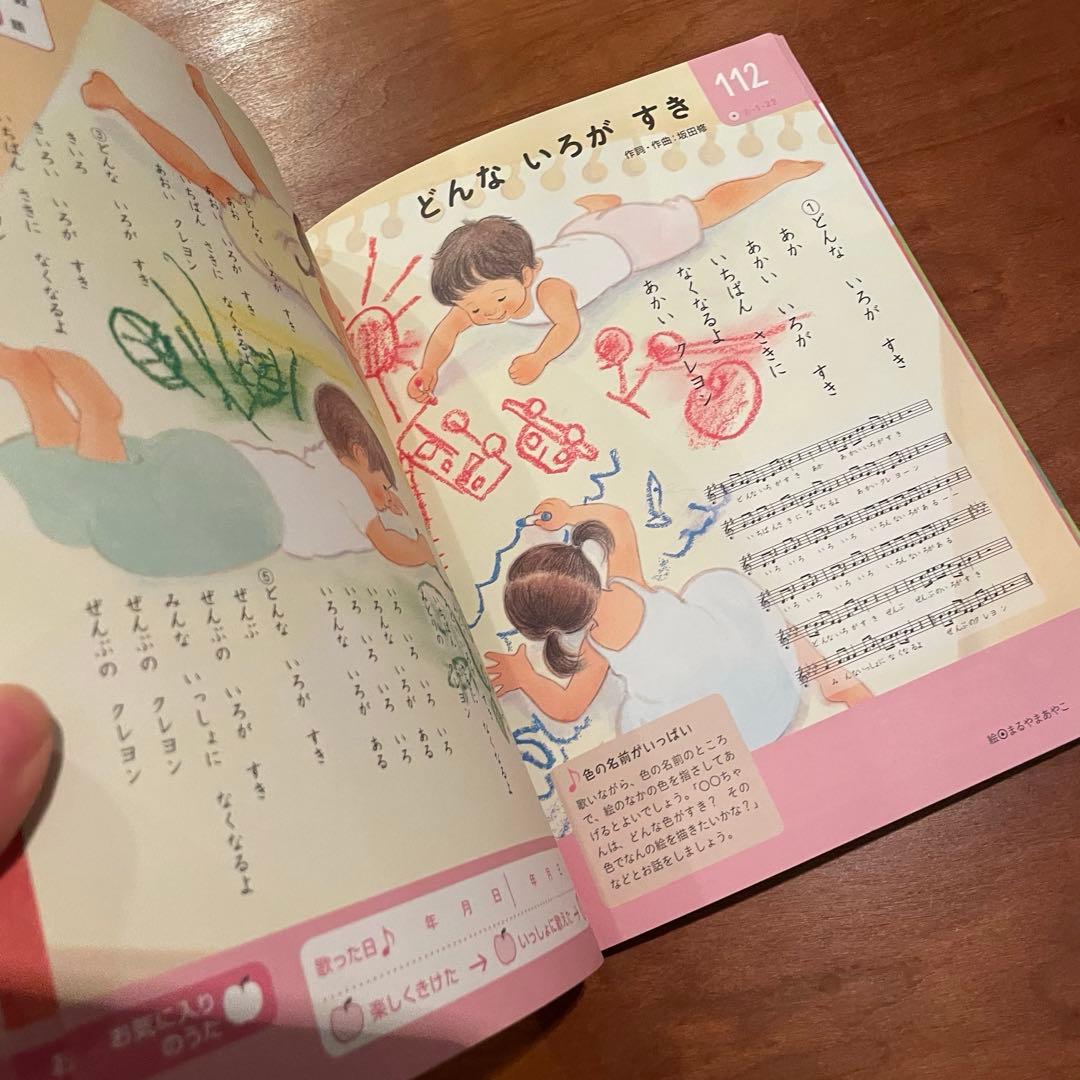 112
どんな いろが すき
作詞・作曲：坂田修
①どんな いろが すき
あか いろが すき
あかい
いちばん さきに
なくなるよ
あかい クレヨン
どんないろがすき あか あかいいろがすき
いちばんさきに なくなるよ あかいクレヨーン
いろ いろ いろ いろ いろんないろがある
いろ いろ いろ いろ いろんないろがある
どんないろがすき ぜんぶ ぜんぶのいろがすき
みんないっしょに なくなるよ ぜんぶのクレヨン
絵 まるやまあやこ
♪色の名前がいっぱい
歌いながら、色の名前のところ
で、絵のなかの色を指さしてあ
げるとよいでしょう。「〇〇ちゃ
んは、どんな色がすき？ その
色でなんの絵を描きたいかな？」
などとお話をしましょう。
どんな いろが すき
あお いろが すき
いちばん さきに なくなるよ
あおい クレヨン
③どんな いろが すき
きいろ
きいろい いろが すき
いちばん さきに なくなるよ
いろ いろ いろ いろ
いろんな いろが ある
⑤どんな いろが すき
ぜんぶ
ぜんぶの いろが すき
みんな いっしょに なくなるよ
ぜんぶの クレヨン
ぜんぶの クレヨン
歌った日♪ 年 月 日 年 月
楽しくきけた → いっしょに歌えた →
お気に入り
のうた